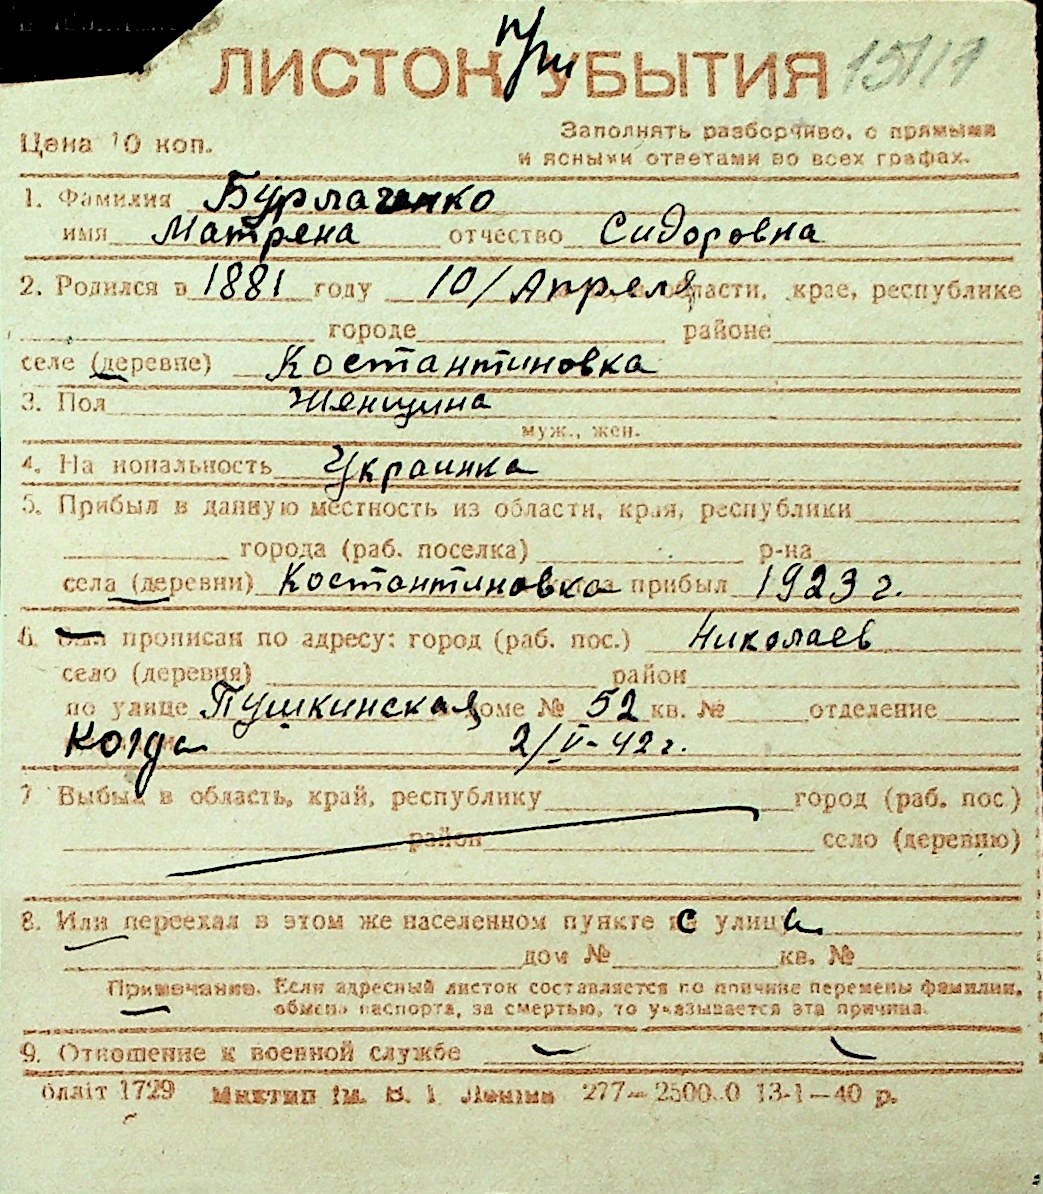 ЛИСТОК при УБЫТИЯ 151/1
Цена 10 коп.
Заполнять разборчиво, с прямыми
и ясными ответами во всех графах.
1. Фамилия Бурлаченко
имя Матрена отчество Сидоровна
2. Родился в 1881 году 10/Апреля области, крае, республике
городе районе
селе (деревне) Костантиновка
3. Пол Женщина
муж., жен.
4. На иональность Украинка
5. Прибыл в данную местность из области, края, республики
города (раб. поселка) р-на
села (деревни) Костантиновка прибыл 1923 г.
6. прописан по адресу: город (раб. пос.) Николаев
село (деревня) район
по улице Пушкинская доме № 52 кв. № отделение
Когда 2/V-42 г.
7 Выбыл в область, край, республику город (раб. пос.)
район село (деревню)
8. Или переехал в этом же населенном пункте с улицы
дом № кв. №
Примечание. Если адресный листок составляется по причине перемены фамилии,
обмена паспорта, за смертью, то указывается эта причина.
9. Отношение к военной службе
блліт 1729 Миктип ім. В. І Леніна 277— 2500.0 13-1—40 р.